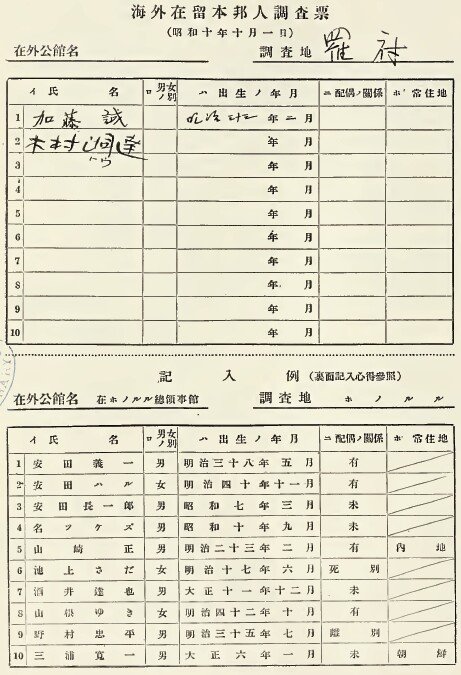 海外在留本邦人調査票
(昭和十年十月一日)
在外公館名 調査地 羅府
イ氏名 ロ男女ノ別 ハ出生ノ年月 ニ配偶ノ關係 ホ常住地
1 加藤誠 明治三十三年二月
2 木村 達 年月
3 年月
4 年月
5 年月
6 年月
7 年月
8 年月
9 年月
10 年月
記入例(裏面記入心得參照)
在外公館名 在ホノルル總領事館 調査地 ホノルル
イ氏名 ロ男女ノ別 ハ出生ノ年月 ニ配偶ノ關係 ホ常住地
1 安田義一 男 明治三十八年五月 有
2 安田ハル 女 明治四十年十一月 有
3 安田長一郎 男 昭和七年三月 未
4 名ツケズ 男 昭和十年九月 未
5 山崎正 男 明治二十三年二月 有 內地
6 池上さだ 女 明治十七年六月 死別
7 酒井達也 男 大正十一年十二月 未
8 山根ゆき 女 明治四十二年十月 有
9 野村忠平 男 明治三十五年七月 離別
10 三浦寬一 男 大正六年一月 未 朝鮮